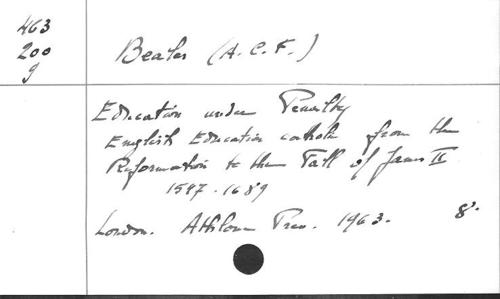 463
200
9
Beales (A. C. F.)
Education under Penalty
English Education catholic from the
Reformation to the Fall of James II
1547 - 1689
London. Athlone Press. 1963. 8°.